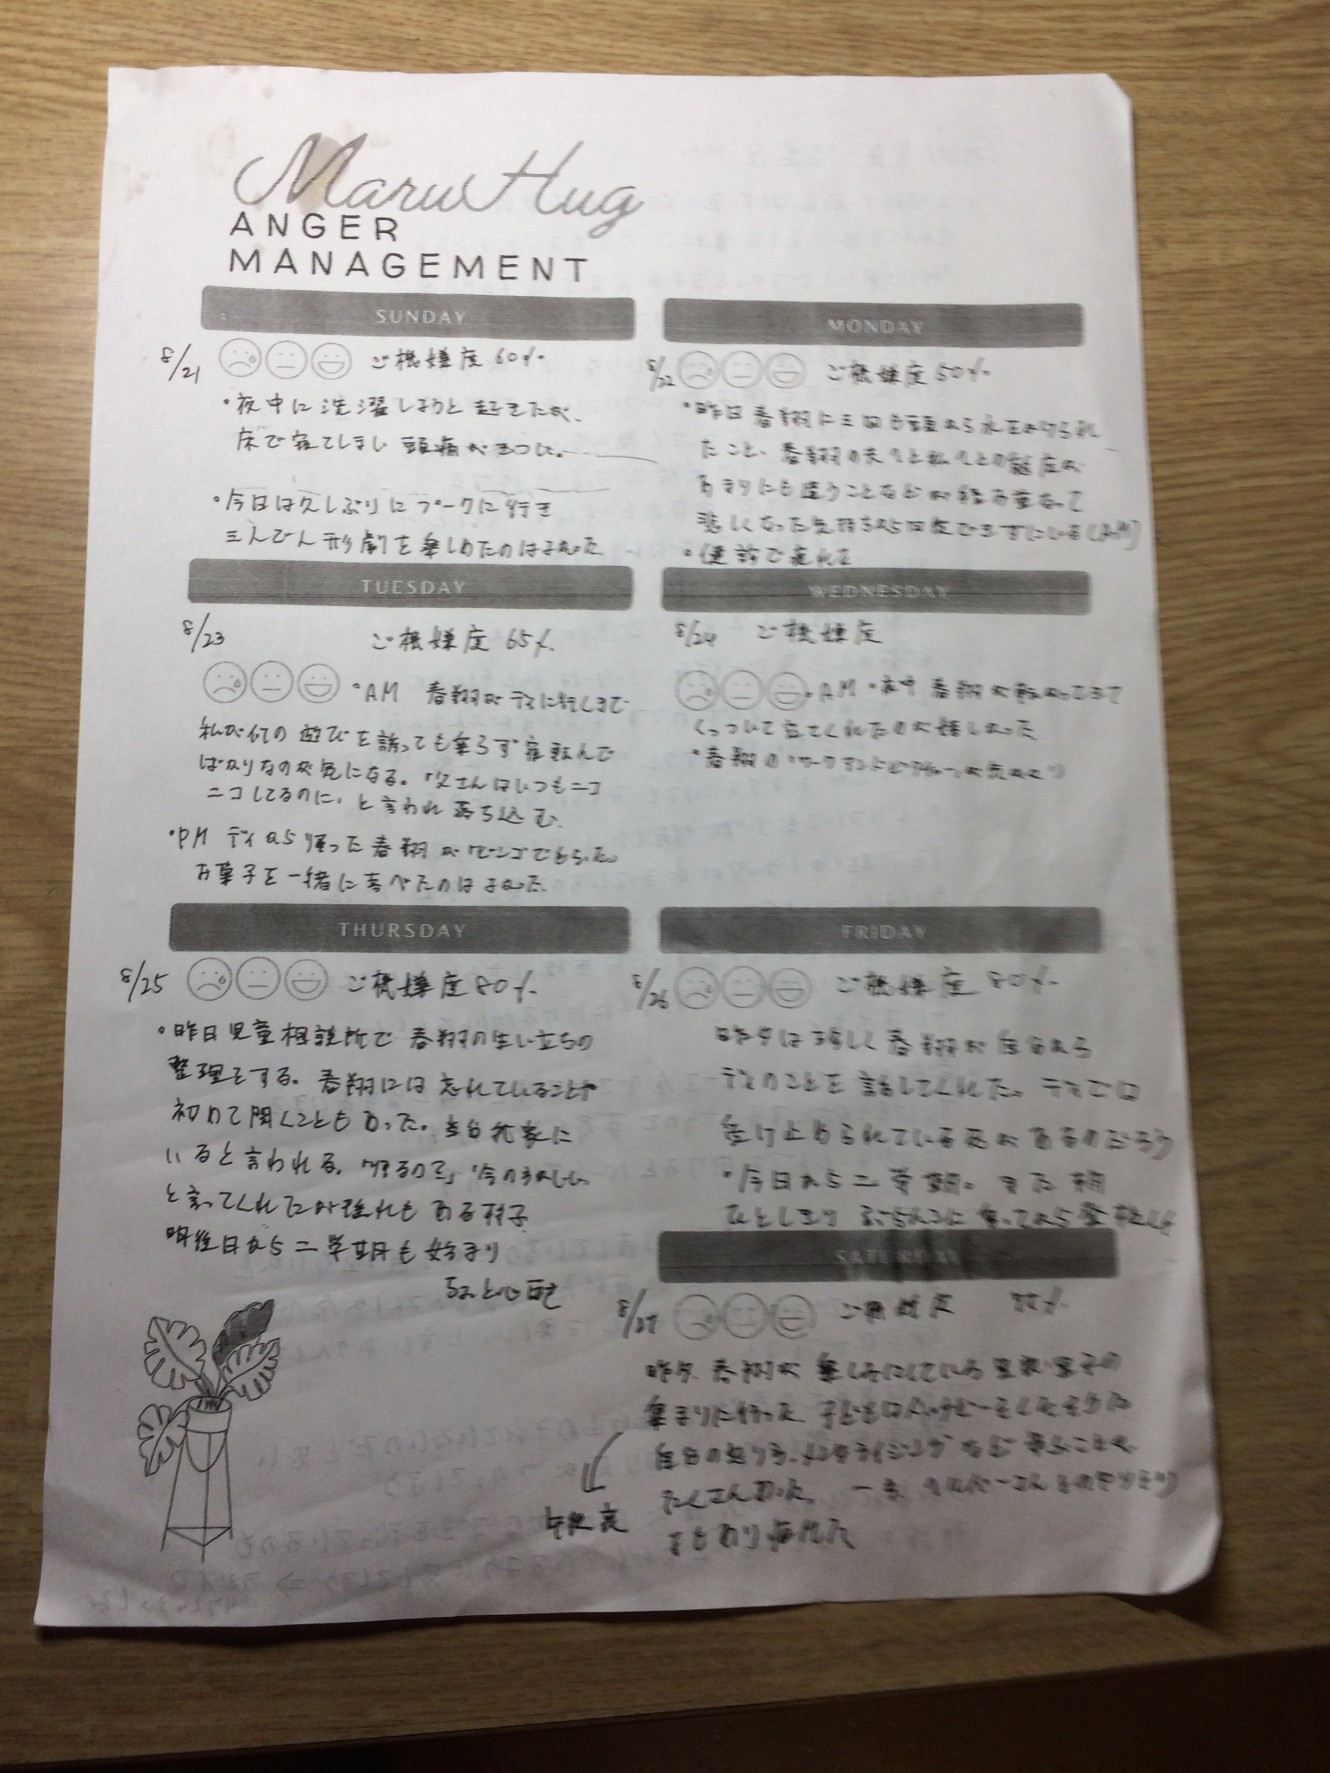 Maru Hug
ANGER
MANAGEMENT
SUNDAY
8/21 ご機嫌度 60%
・夜中に洗濯しようと起きたが、
床で寝てしまい 頭痛がきつい。
・今日は久しぶりに プークに行き
三人でん形劇を楽しめたのはよかった
MONDAY
8/22 ご機嫌度 50%
・昨日 春翔に三回も頭から水をかけられ
たこと、春翔の夫へと私への態度が
あまりにも違うことなどが積み重なって
悲しくなった気持ちから回復できずにいる(AM)
・健診で疲れる
TUESDAY
8/23 ご機嫌度 65%
・AM 春翔がデイに行くまで
私が何の遊びを誘っても乗らず寝転んで
ばかりなのが気になる。「父さんはいつもニコ
ニコしてるのに」と言われ落ち込む
・PM デイから帰った春翔がビンゴでもらった
お菓子を一緒に食べたのはよかった
WEDNESDAY
8/24 ご機嫌度
・AM 春翔が転がってきて
くっついて寝てくれたのが嬉しかった
・春翔の
THURSDAY
8/25 ご機嫌度 80%
・昨日児童相談所で 春翔の生い立ちの
整理をする。春翔には忘れていることや
初めて聞くこともあった。
いると言われる。
と言ってくれたが疲れもある様子
明後日から二学期も始まり
ちょっと心配
FRIDAY
8/26 ご機嫌度 80%
昨夕は珍しく春翔が自分から
デイのことを話してくれた。デイでは
受け止められている感があるのだろう
・今日から二学期。また朝
ひとしきり ぶらんこに乗ってから登校した
SATURDAY
8/27 ご機嫌度
昨夕、春翔が楽しみにしている里親・里子の
集まりに行った
自分の怒り方、 など学ぶことが
たくさんあった。 一方、ヘルパーさんとのやりとり
もあり疲れた